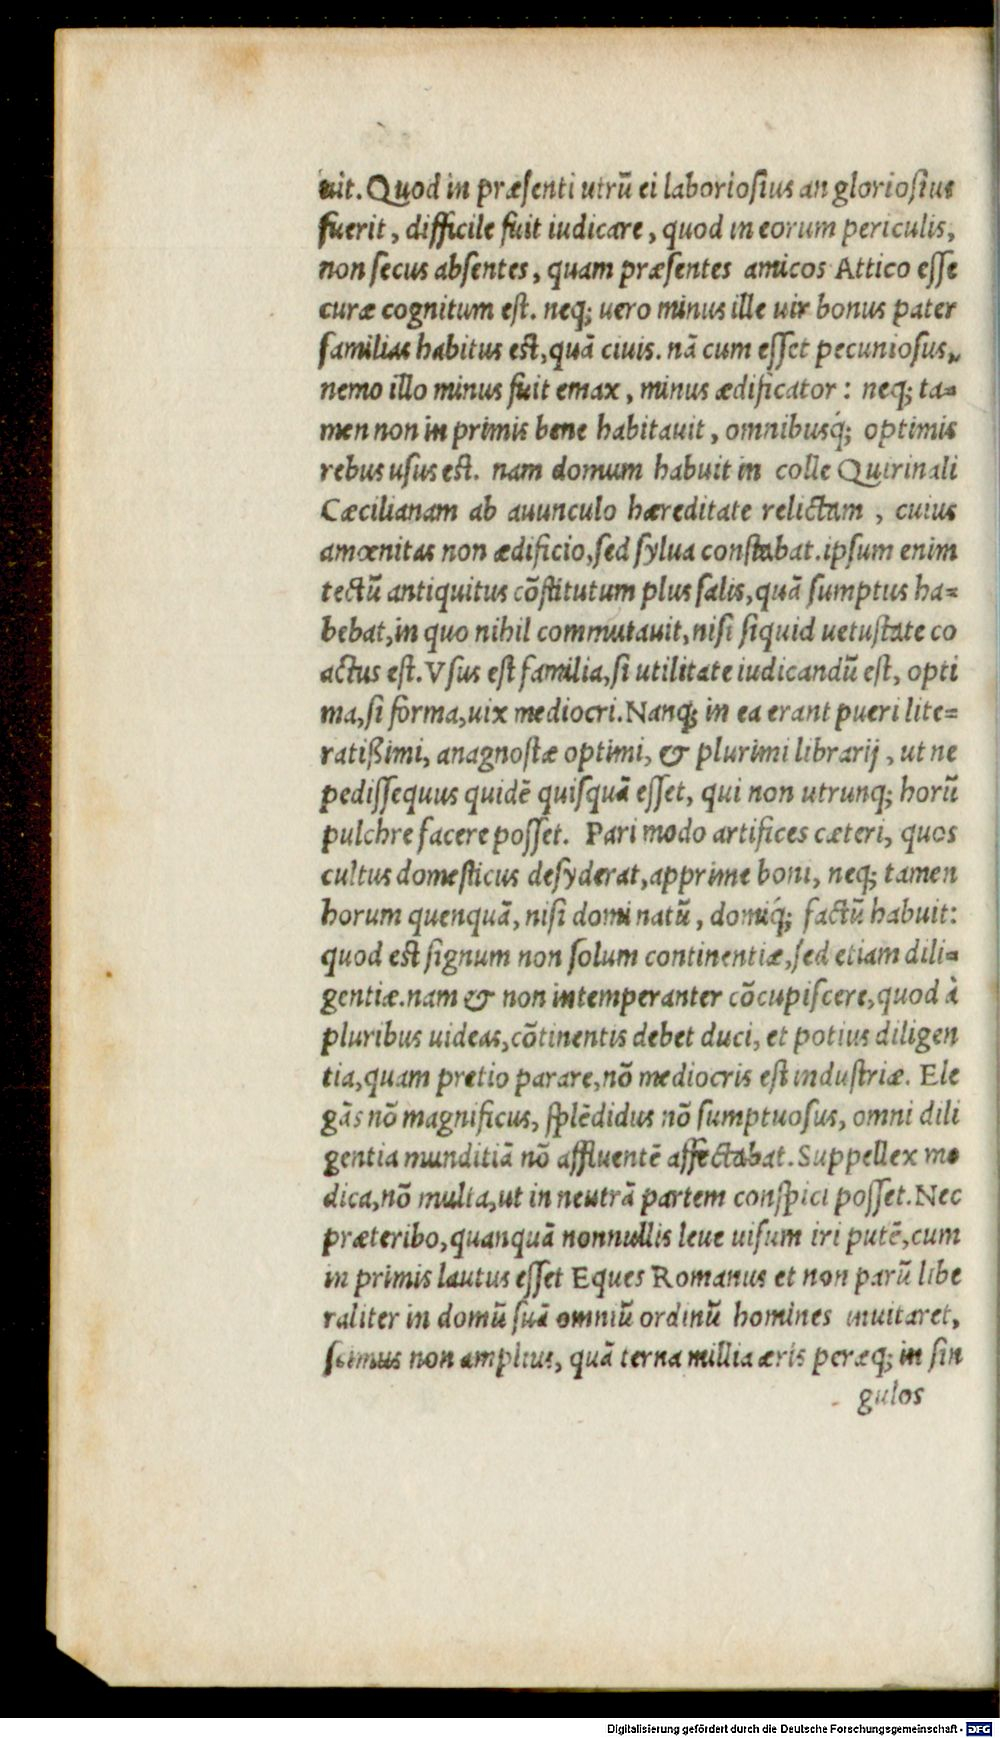 uit. Quod in præsenti utrũ ei laboriosius an gloriosius
fuerit, difficile fuit iudicare, quod in eorum periculis,
non secus absentes, quam præsentes amicos Attico esse
curæ cognitum est. neq; uero minus ille uir bonus pater
familias habitus est, quã ciuis. nã cum esset pecuniosus,
nemo illo minus fuit emax, minus ædificator: neq; ta=
men non in primis bene habitauit, omnibusq́; optimis
rebus usus est. nam domum habuit in colle Quirinali
Cæcilianam ab auunculo hæreditate relictam, cuius
amœnitas non ædificio, sed sylua constabat. ipsum enim
tectũ antiquitus cõstitutum plus salis, quã sumptus ha=
bebat, in quo nihil commutauit, nisi siquid uetustate co
actus est. Vsus est familia, si utilitate iudicandũ est, opti
ma, si forma, uix mediocri. Nanq; in ea erant pueri lite=
ratißimi, anagnostæ optimi, & plurimi librarij, ut ne
pedissequus quidẽ quisquã esset, qui non utrunq; horũ
pulchre facere posset. Pari modo artifices cæteri, quos
cultus domesticus desyderat, apprime boni, neq; tamen
horum quenquã, nisi domi natũ, domiq́; factũ habuit:
quod est signum non solum continentiæ, sed etiam dili=
gentiæ. nam & non intemperanter cõcupiscere, quod à
pluribus uideas, cõtinentis debet duci, et potius diligen
tia, quam pretio parare, nõ mediocris est industriæ. Ele
gãs nõ magnificus, splẽdidus nõ sumptuosus, omni dili
gentia munditiã nõ affluentẽ affectabat. Suppellex mo
dica, nõ multa, ut in neutrã partem conspici posset. Nec
præteribo, quanquã nonnullis leue uisum iri putẽ, cum
in primis lautus esset Eques Romanus et non parũ libe
raliter in domũ suã omniũ ordinũ homines inuitaret,
scimus non amplius, quã terna millia æris peræq; in sin
gulos
Digitalisierung gefördert durch die Deutsche Forschungsgemeinschaft - DFG